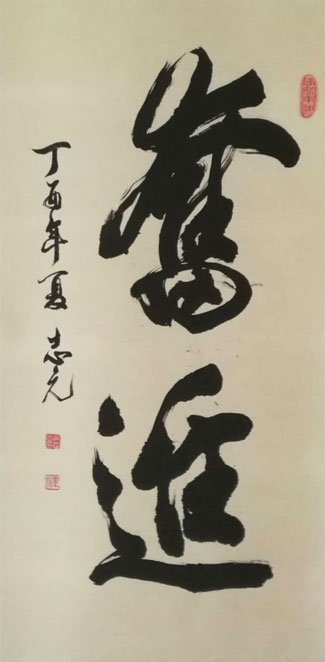 奮進
丁酉年夏志元